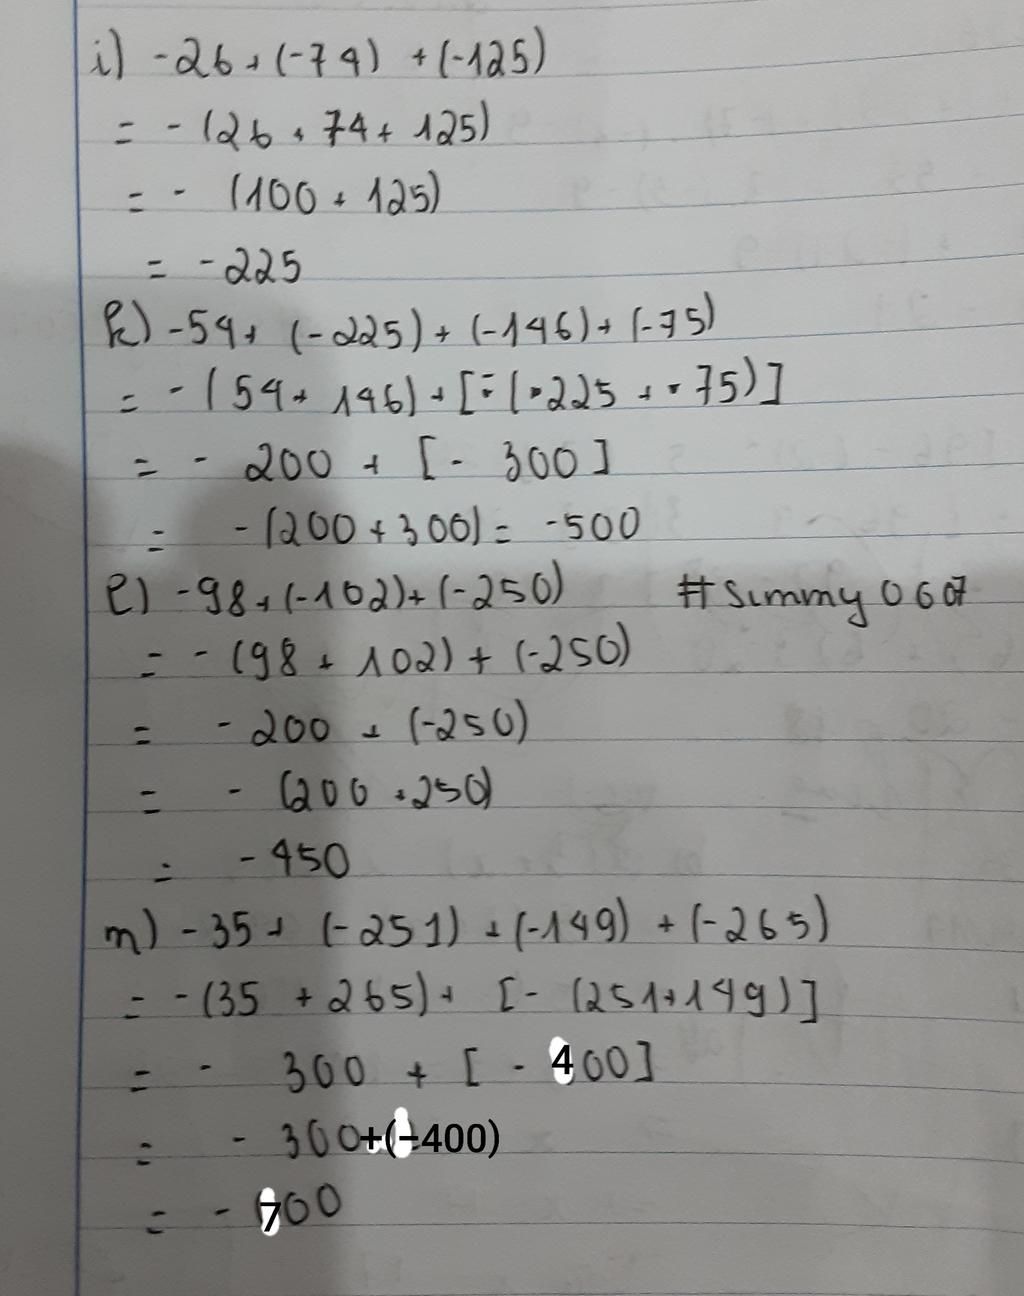 i) -26 + (-74) + (-125)
= - (26 + 74 + 125)
= - (100 + 125)
= -225
k) -54 + (-225) + (-146) + (-75)
= - (54 + 146) + [-(225 + 75)]
= - 200 + [- 300]
= -(200 + 300) = -500
l) -98 + (-102) + (-250) #Summy0607
= - (98 + 102) + (-250)
= - 200 + (-250)
= - (200 + 250)
= - 450
m) -35 + (-251) + (-149) + (-265)
= - (35 + 265) + [- (251 + 149)]
= - 300 + [- 400]
= - 300+(-400)
= - 700